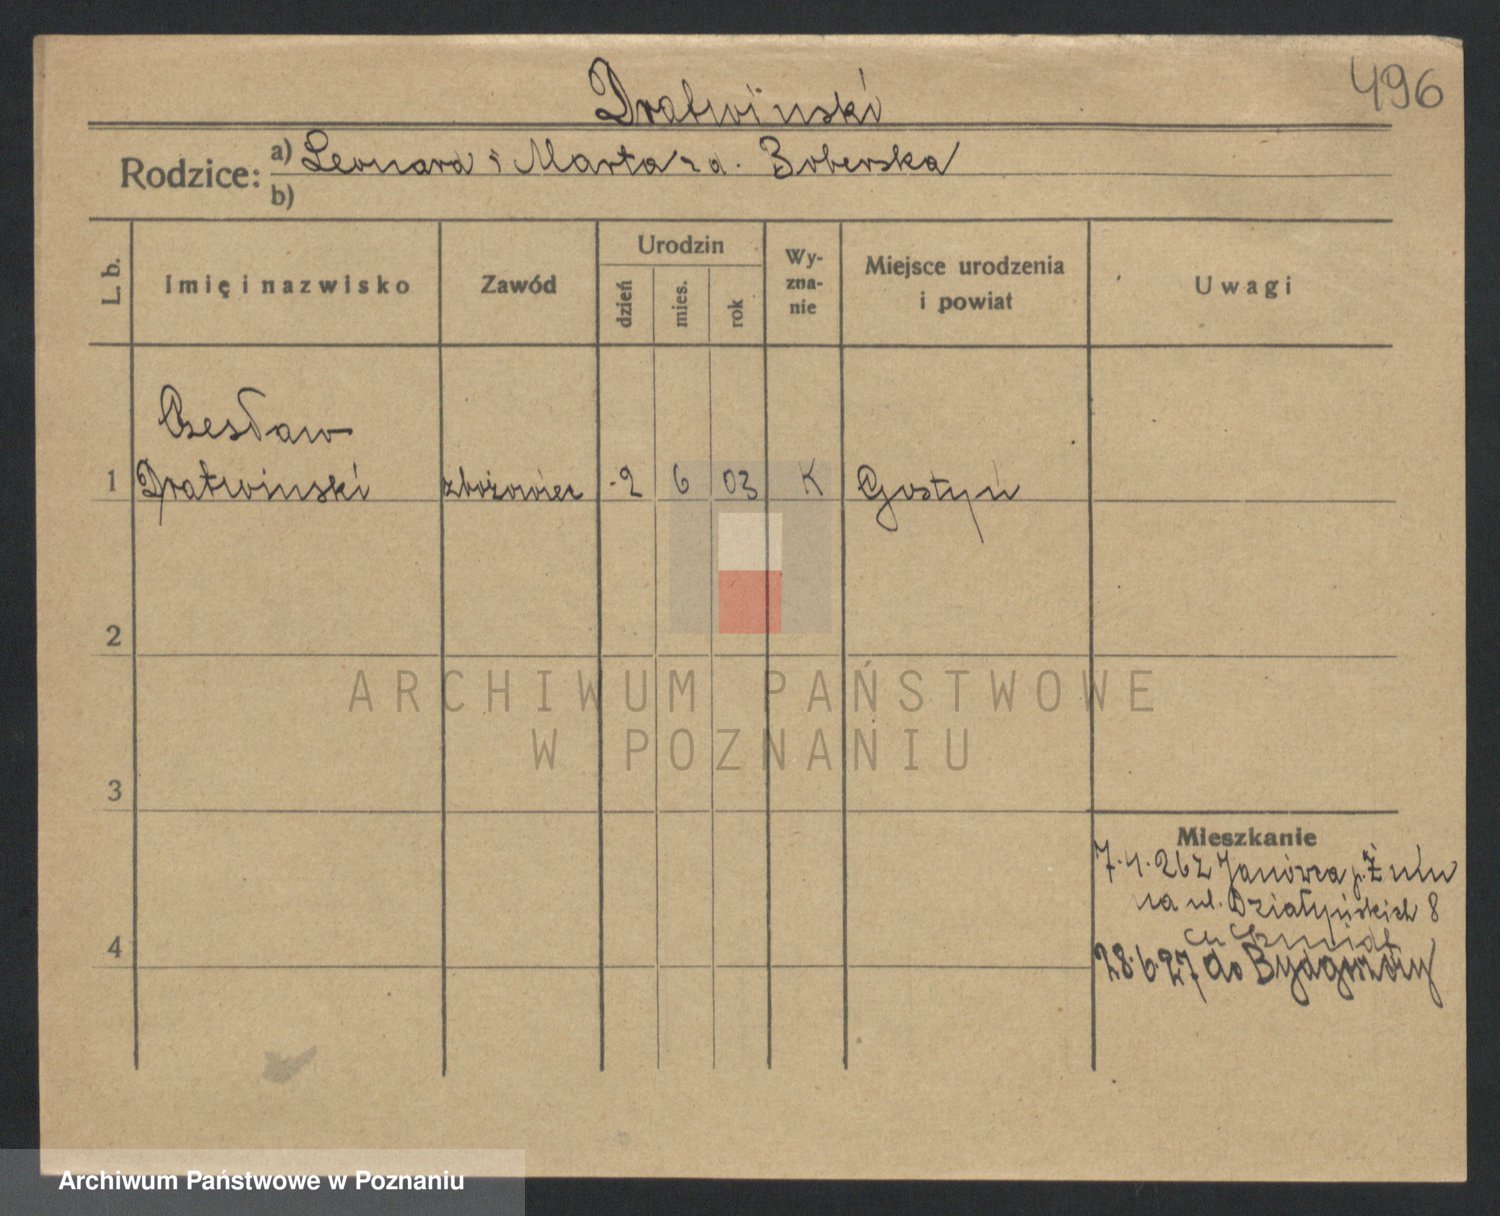 496
Dratwiński
Rodzice: a) Leonard i Marta zd. Boberska
b)
L. b. Imię i nazwisko Zawód Urodzin dzień mies. rok Wy-zna-nie Miejsce urodzenia i powiat Uwagi
Czesław
1 Dratwiński zbożowiec 2 6 03 K Gostyń
2
ARCHIWUM PAŃSTWOWE
W POZNANIU
3
Mieszkanie
7.4.26 z Janówca p. Żnin
na ul. Działyńskich 8
4
28.6.27 do Bydgoszczy
Archiwum Państwowe w Poznaniu